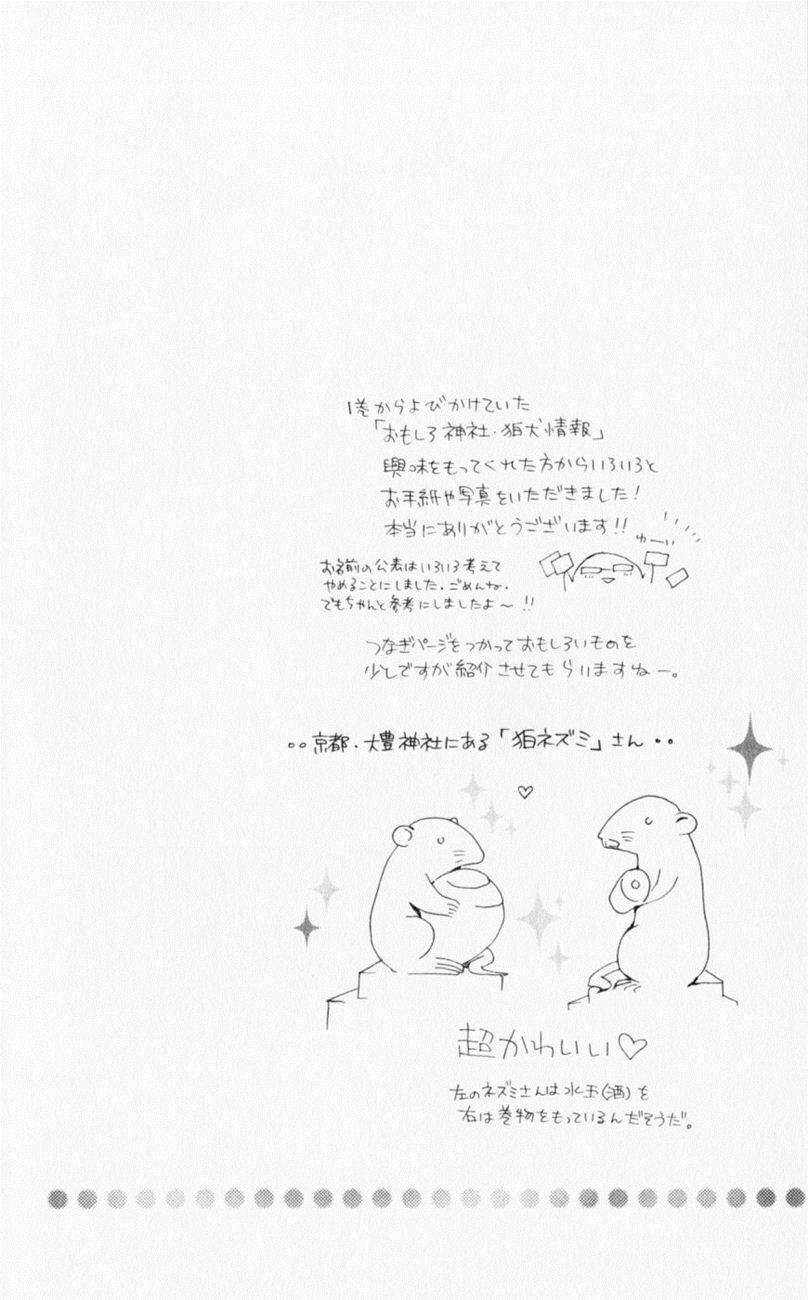 1巻からよびかけていた
「おもしろ神社・狛犬情報」
興味をもってくれた方からいろいろと
お手紙や写真をいただきました!
本当にありがとうございます!!
お名前の公表はいろいろ考えて
やめることにしました。ごめんね。
でもちゃんと参考にしましたよ〜!!
つなぎページをつかっておもしろいものを
少しですが紹介させてもらいますねー。
··京都・大豊神社にある「狛ネズミ」さん··
超かわいい♡
左のネズミさんは水玉(酒)を
右は巻物をもっているんだそうだ。